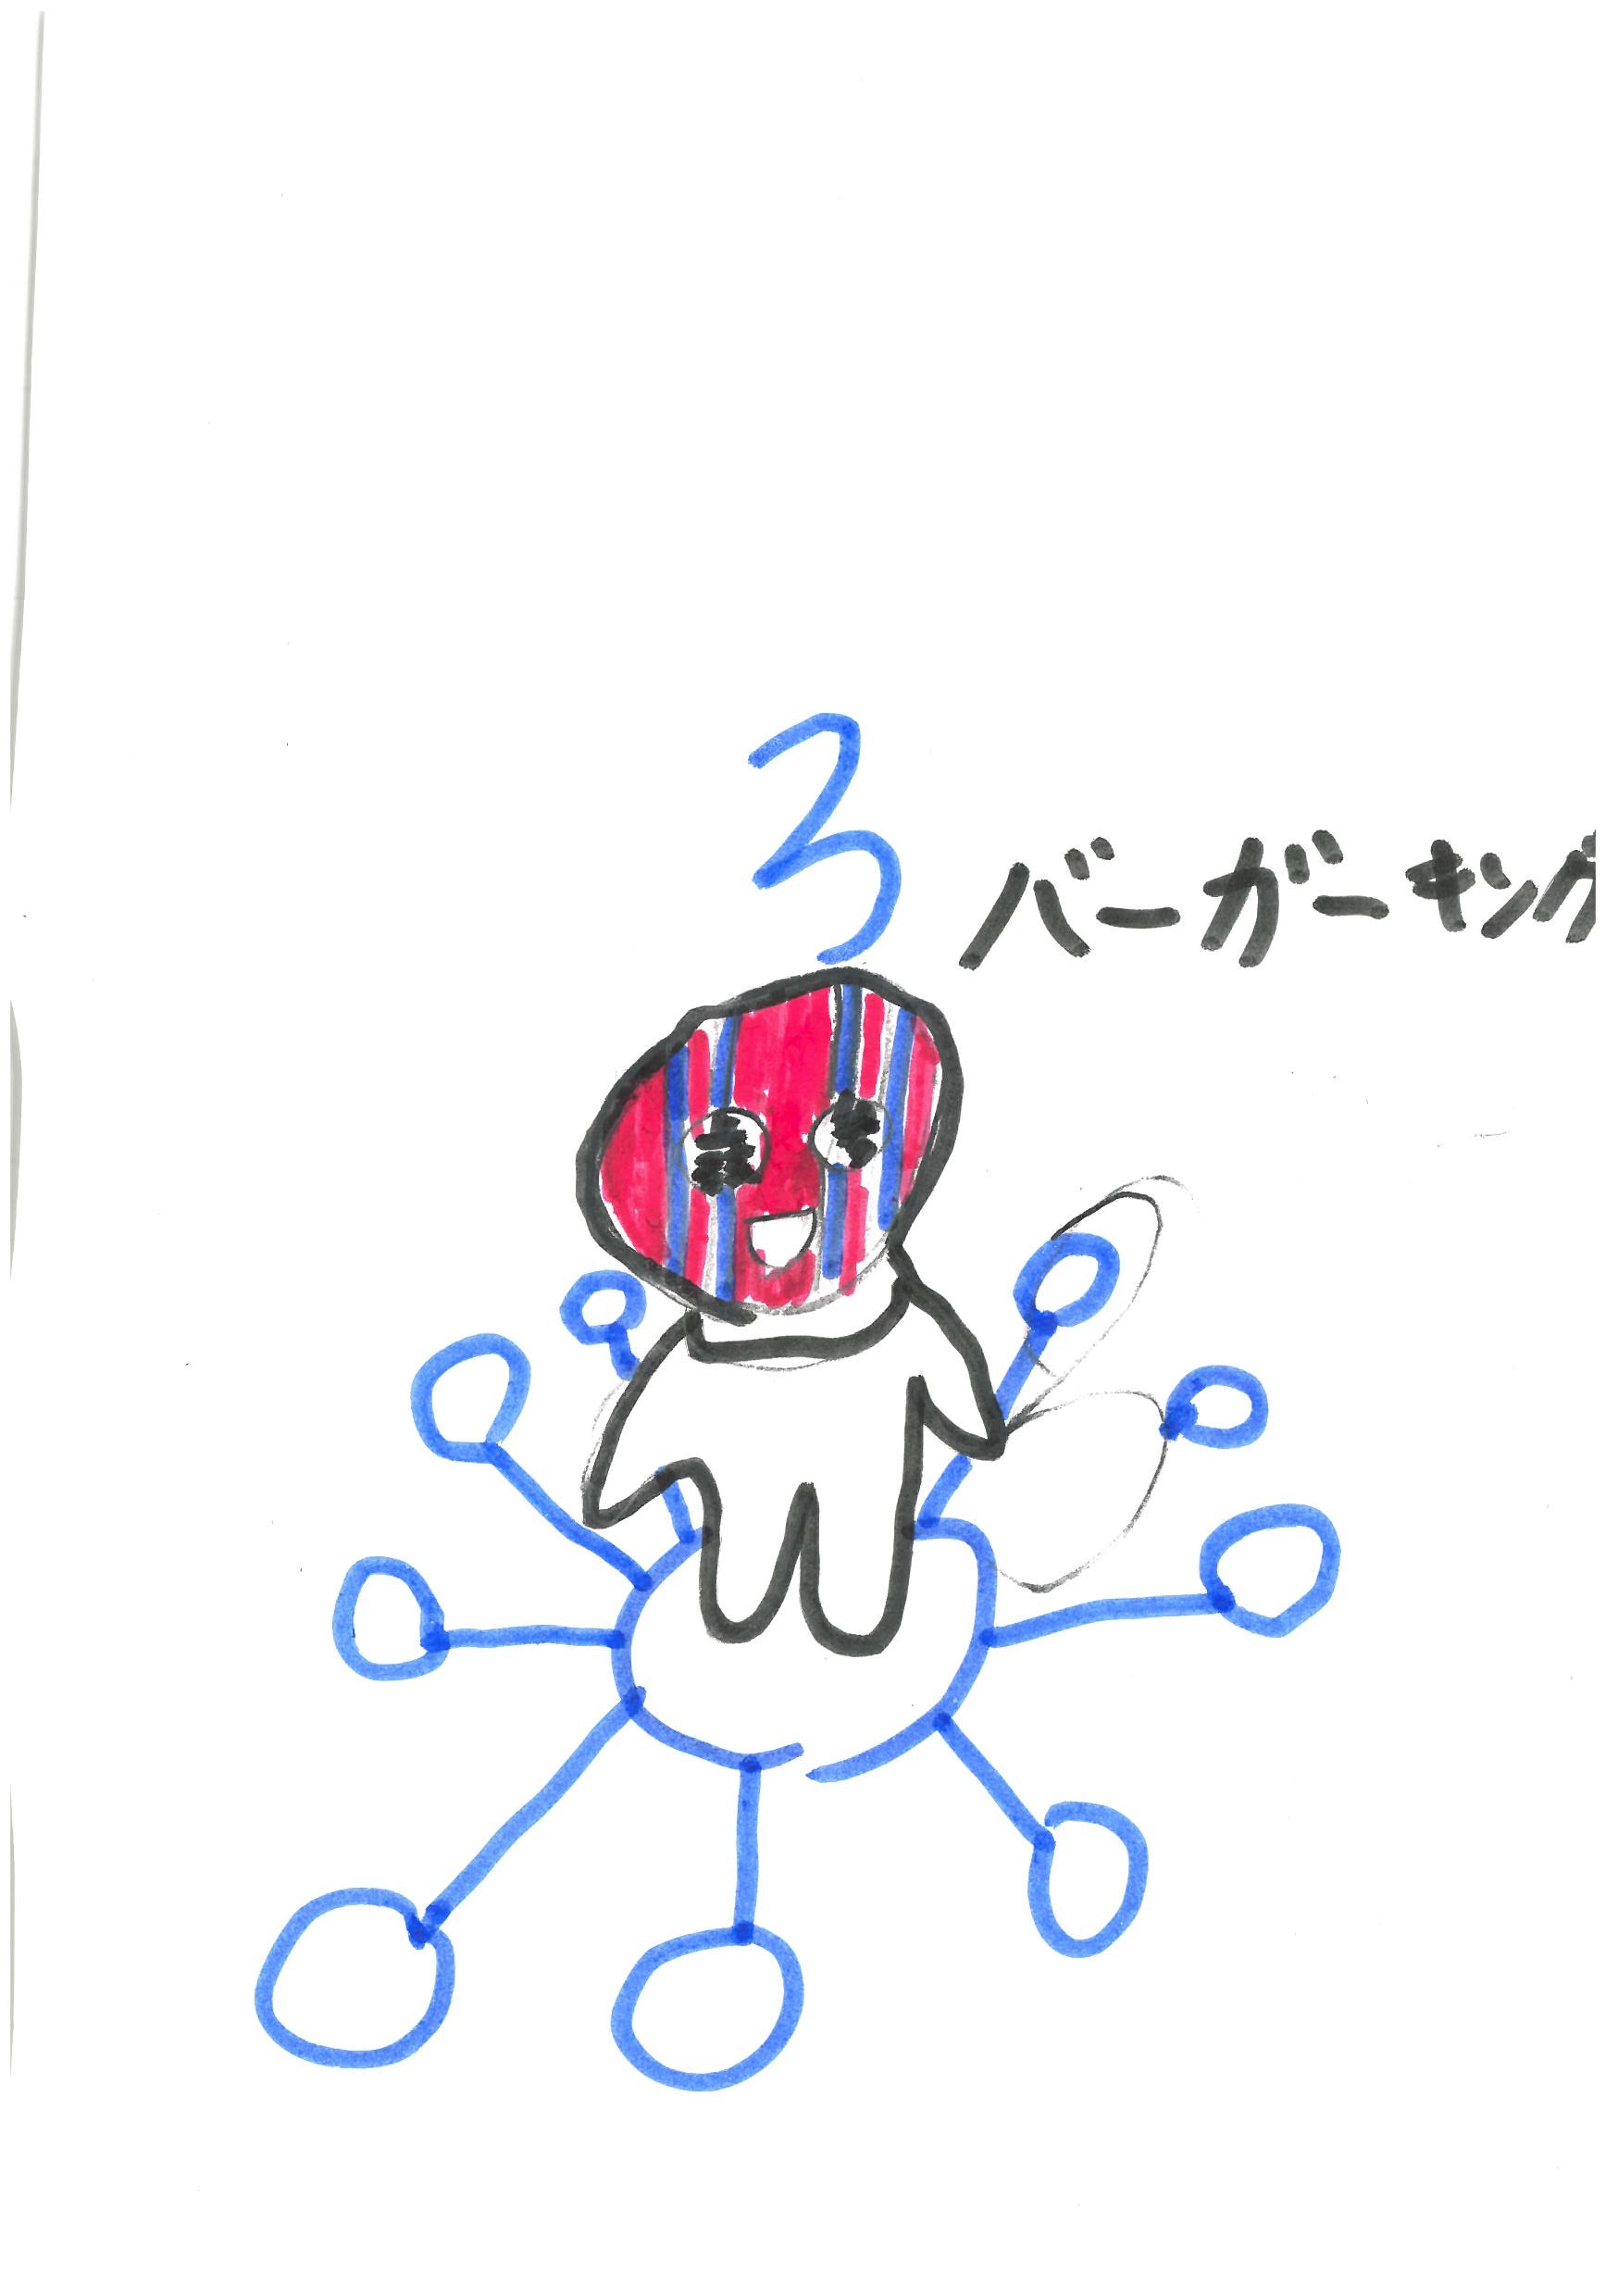 3
バーガーキング